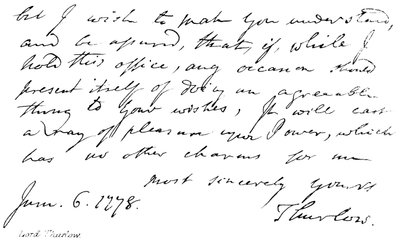 but I wish to make you understand,
and be assured, that, if, while I
hold this office, any occasion should
present itself of doing an agreeable
thing to your wishes, it will cast
a ray of pleasure upon Power, which
has no other charms for me
most sincerely yours
Jun. 6. 1778. Thurlow.
Lord Thurlow.